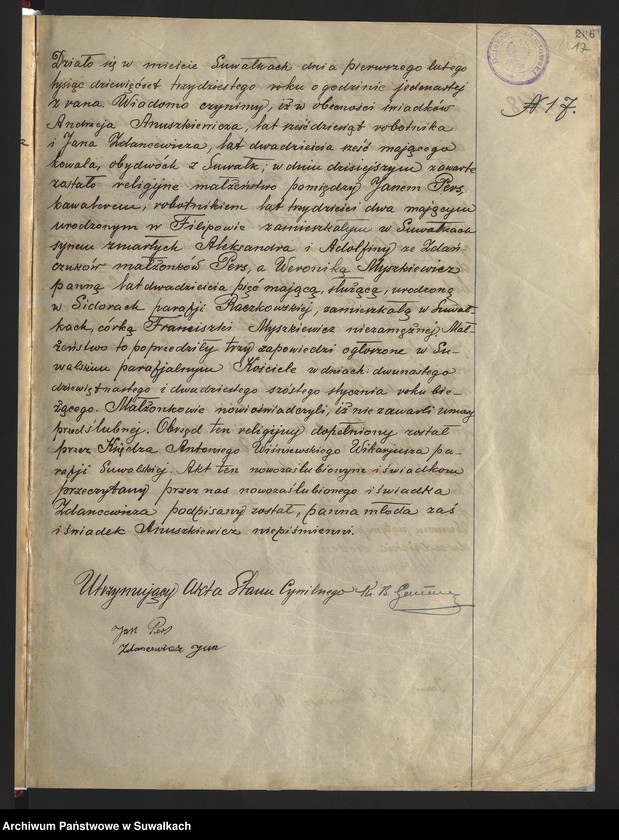 206
17
№ 17.
Działo się w mieście Suwałkach dnia pierwszego lutego
tysiąc dziewięćset trzydziestego roku o godzinie jedenastej
z rana. Wiadomo czynimy, iż w obecności świadków
Andrzeja Anuszkiewicza, lat sześćdziesiąt robotnika
i Jana Zdancewicza, lat dwadzieścia sześć mającego
kowala, obydwóch z Suwałk, w dniu dzisiejszym zawarte
zostało religijne małżeństwo pomiędzy Janem Pers,
kawalerem, robotnikiem lat trzydzieści dwa mającym
urodzonym w Filipowie zamieszkałym w Suwałkach
synem zmarłych Aleksandra i Adolfiny ze Zdań-
czuków małżonków Pers, a Weroniką Myszkiewicz
panną lat dwadzieścia pięć mającą, służącą, urodzoną
w Sidorach parafji Raczkowskiej, zamieszkałą w Suwał-
kach, córką Franciszki Myszkiewicz niezamężnej Mał-
żeństwo to poprzedziły trzy zapowiedzi ogłoszone w Su-
walskim parafjalnym Kościele w dniach: dwunastego
dziewiętnastego i dwudziestego szóstego stycznia roku bie-
żącego. Małżonkowie nowi oświadczyli, iż nie zawarli umowy
przedślubnej. Obrzęd ten religijny dopełniony został
przez Księdza Antoniego Wiśniewskiego Wikarjusza pa-
rafji Suwalskiej. Akt ten nowozaślubionym i świadkom
przeczytany przez nas nowozaślubionego i świadka
Zdancewicza podpisany został, panna młoda zaś
i świadek Anuszkiewicz niepiśmienni.
Utrzymujący Akta Stanu Cywilnego Ks. B
Jan Pers
Zdancewicz Jan
Archiwum Państwowe w Suwałkach